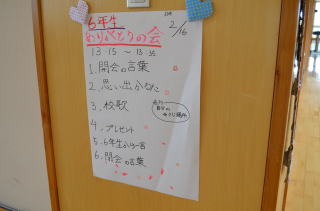 6年生
2/16
ありがとうの会
13:15 ~ 13:35
1. 開会の言葉
2. 思い出かるた
3. 校歌
4. プレゼント
5. 6年生から一言
6. 閉会の言葉